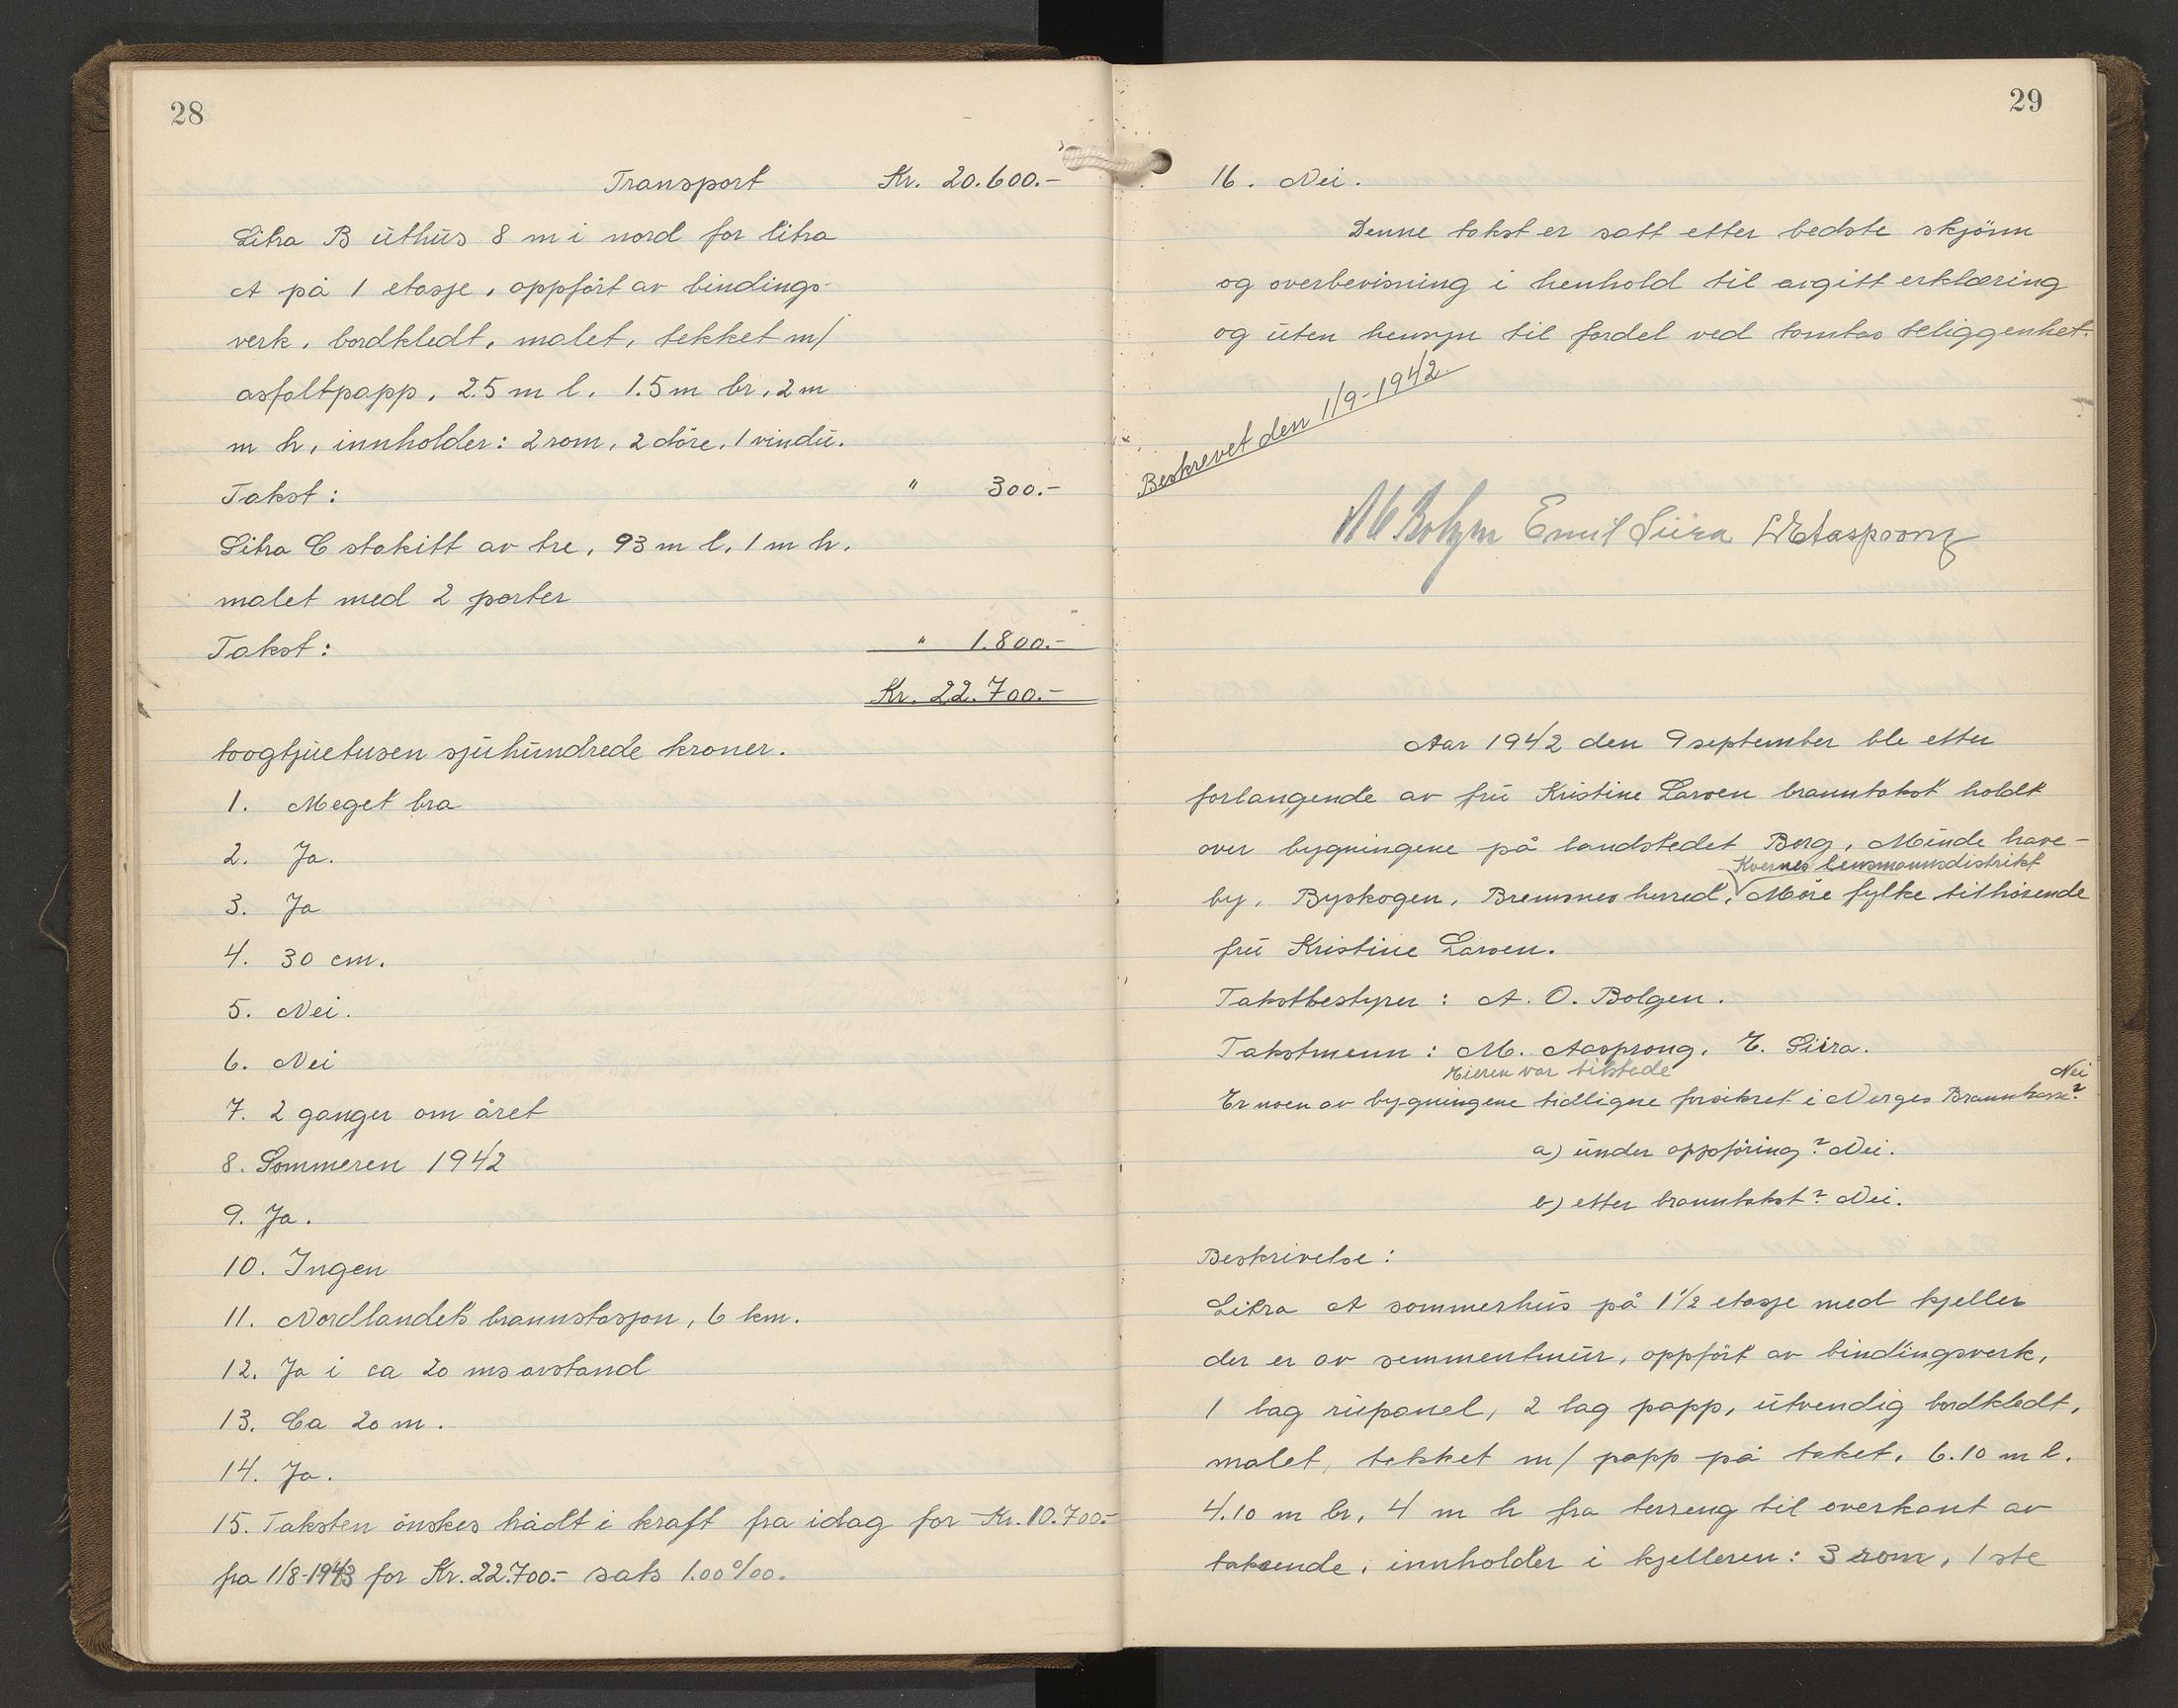 28
Transport Kr. 20.600.-
Litra B uthus 8 m i nord for litra
A på 1 etasje, oppført av bindings-
verk, bordkledt, malet, tekket m/
asfaltpapp, 2.5 m l. 1.5 m br, 2 m
m h, innholder: 2 rom, 2 döre, 1 vindu.
Takst: " 300.-
Litra C stakitt av tre, 93 m l, 1 m h.
malet med 2 porter
Takst: " 1.800.-
Kr. 22.700.-
toogtjuetusen sjuhundrede kroner.
1. Meget bra
2. Ja.
3. Ja
4. 30 cm.
5. Nei.
6. Nei
7. 2 ganger om året
8. Sommeren 1942
9. Ja.
10. Ingen
11. Nordlandets brannstasjon, 6 km.
12. Ja i ca 20 ms avstand
13. Ca 20 m.
14. Ja.
15. Taksten önskes hådt i kraft fra idag for Kr. 10.700.-
fra 1/8-1943 for Kr. 22.700.- sats 1.00 0/00.
29
16. Nei.
Denne takst er satt etter bedste skjönn
og overbevisning i henhold til avgitt erklæring
og uten hensyn til fordel ved tomtas beliggenhet.
Beskrevet den 1/9-1942.
Emil Siira M Aasprong
Aar 1942 den 9 september ble etter
forlangende av fru Kristine Larsen branntakst holdt
over bygningene på landstedet Berg, Minde have-
Kvernes lensmannsdistrikt
by, Byskogen, Bremsnes herred, Möre fylke tilhörende
fru Kristine Larsen.
Takstbestyrer: A. O. Bolgen.
Takstmenn: M. Aasprong, E. Siira.
Eieren var tilstede
Nei
Er noen av bygningene tidligere forsikret i Norges Brannkasse?
a) under oppföring? Nei.
b) etter branntakst? Nei.
Beskrivelse:
Litra A sommerhus på 1 1/2 etasje med kjeller
der er av semmentmur, oppfört av bindingsverk,
1 lag rupanel, 2 lag papp, utvendig bordkledt,
malet, tekket m/ papp på taket, 6.10 m l.
4.10 m br, 4 m h fra terreng til overkant av
taksende, innholder i kjelleren: 3 rom, 1 ste